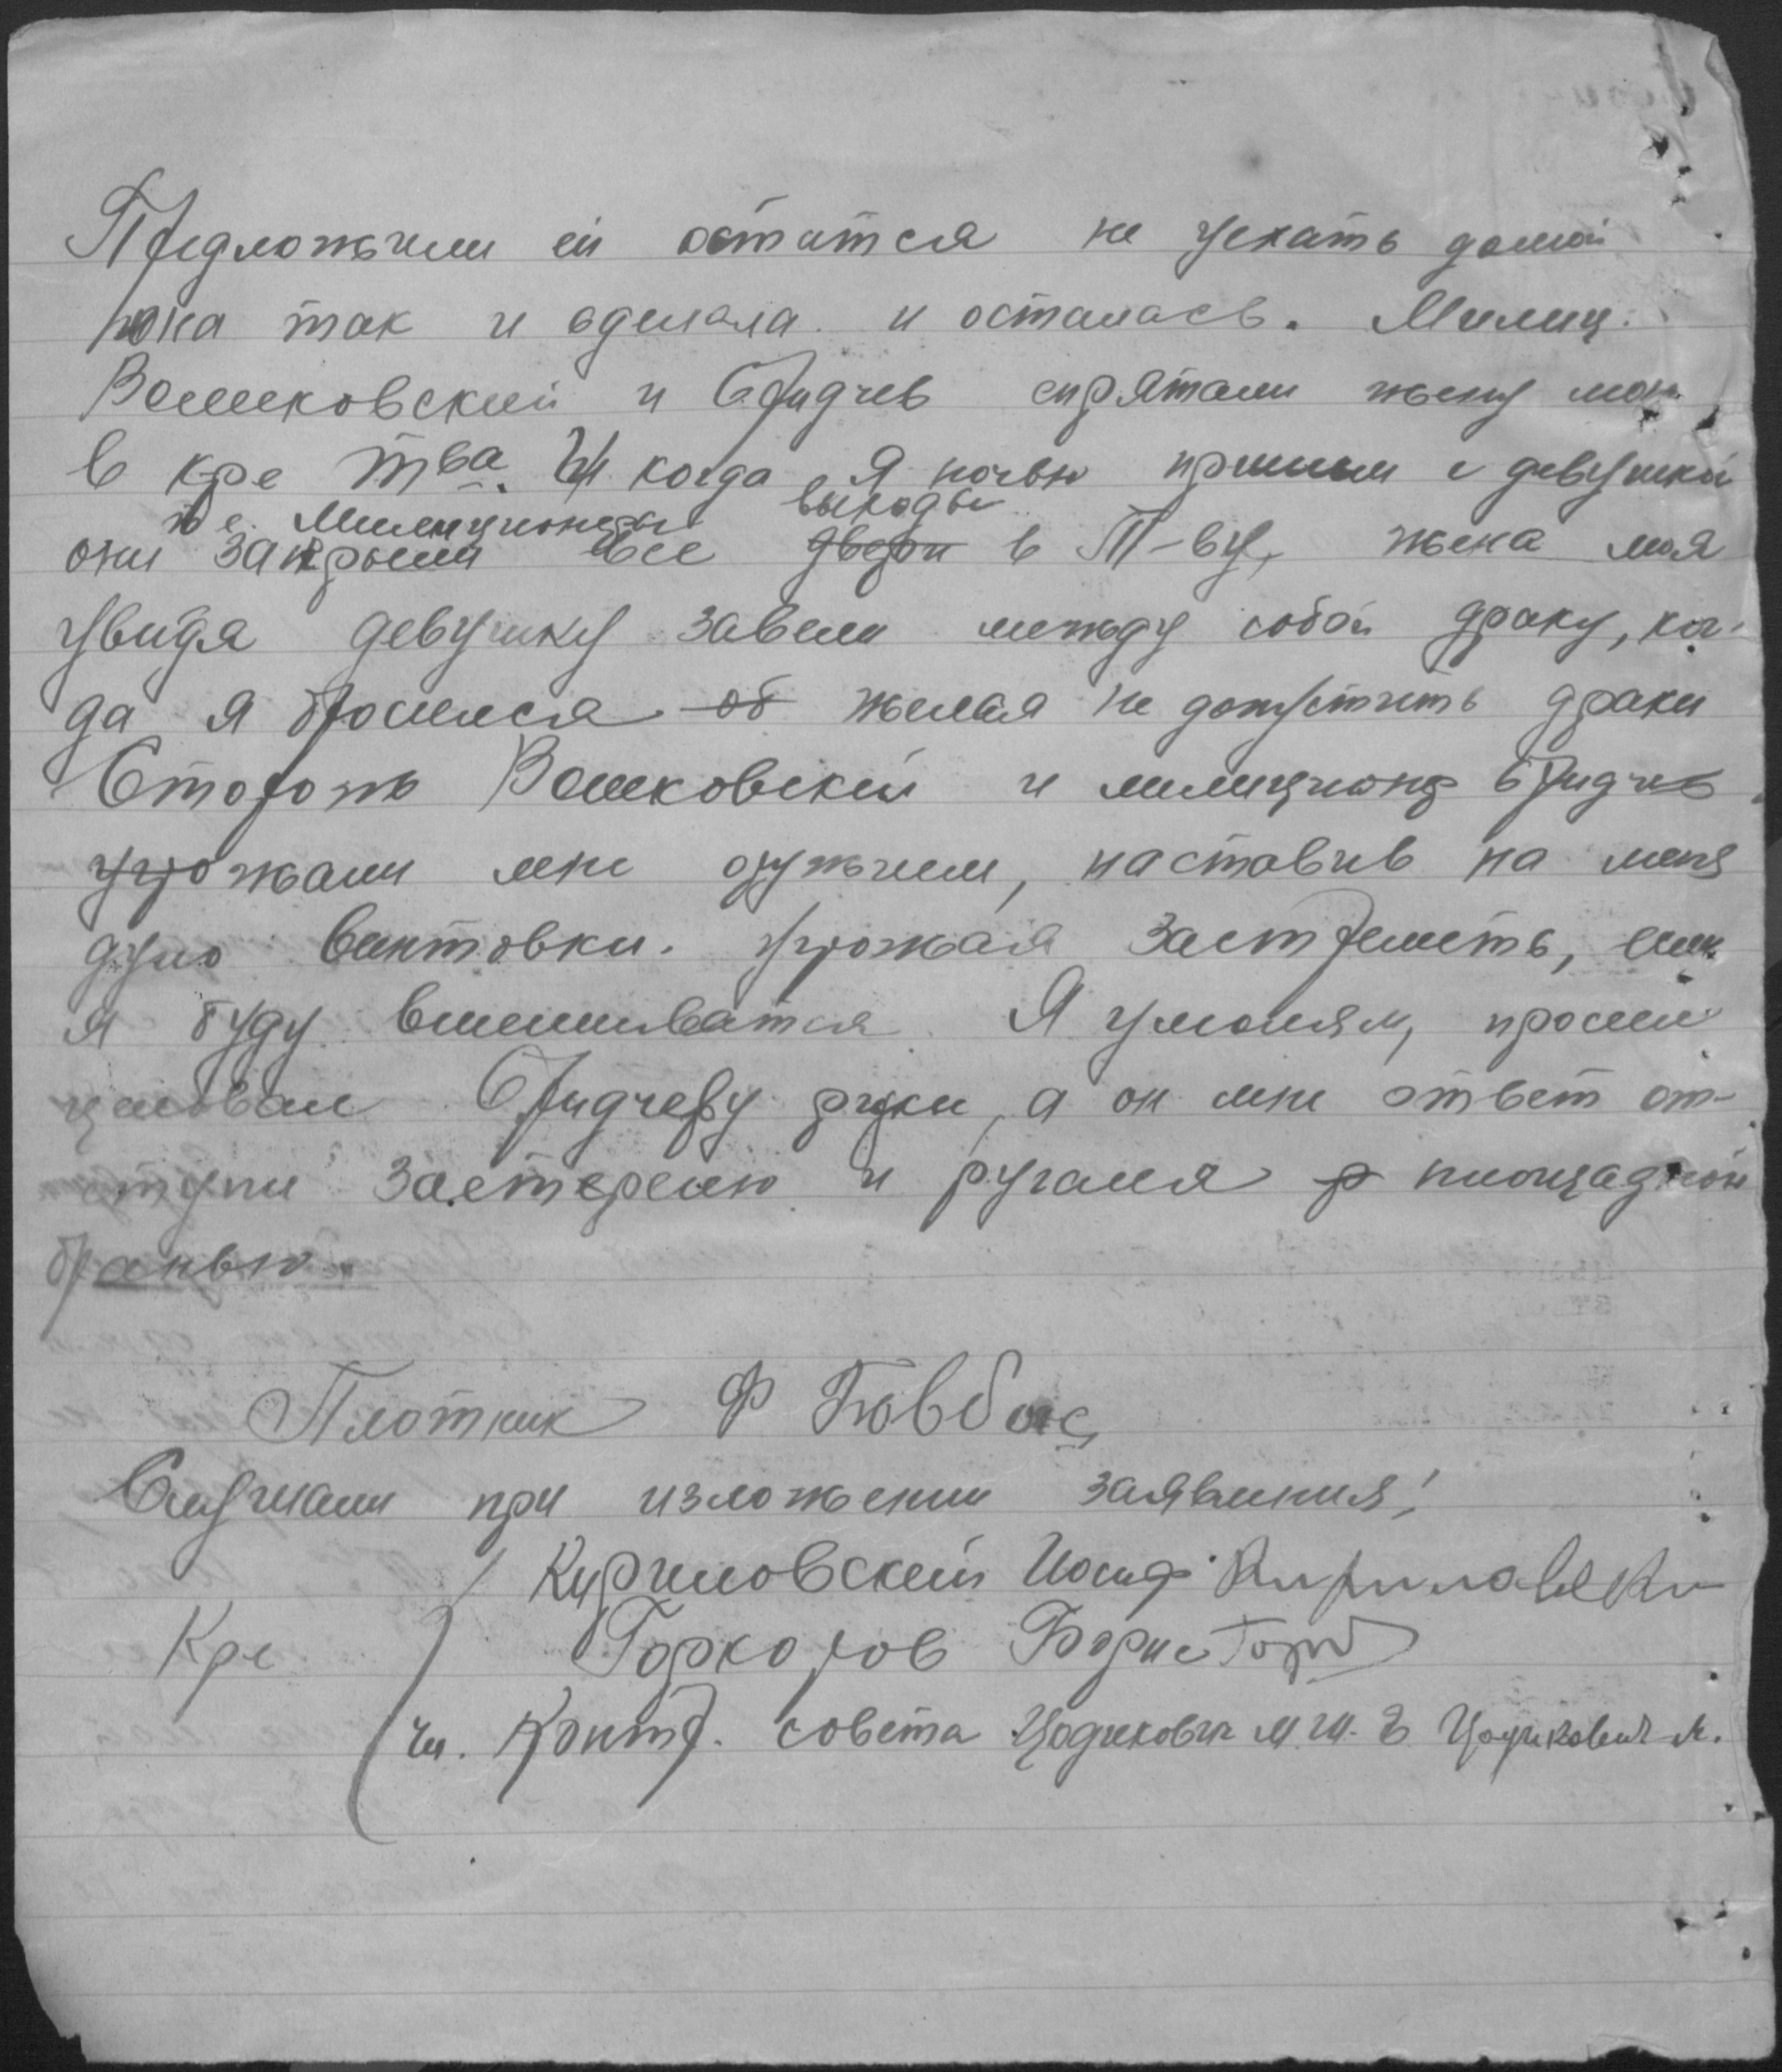 Предложили ей остатся не уехать домой
она так и сделала и осталась. Милиц.
Воликовский и Спидчев спрятали жену мою
в кре тва. И когда я ночью пришел с девушкой
т.е. Милиционеры выходы
они закрыли все двери в Т-ву, жена моя
увидя девушку завели между собой драку, ког-
да я бросился об желая не допустить драки
Сторож Воликовский и милиционер Спидчев
угрожали мне оружием, наставив на меня
дуло винтовки. угрожая застрелить, если
я буду вмешиватся. Я умолял, просил
целовал Спидчеву руки, а он мне ответ от-
ступи застерелю и ругался р площадной
бранью.
Плотник Ф Бовбас
Слушали при изложении заявления:
Куриловский Иосиф
Кре Горхоров Борис
чл. Контр. совета Цодикович М.Ш. Цодикович М.